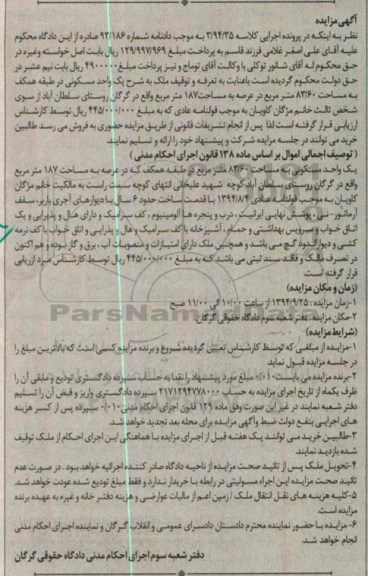 آگهی مزایده
نظر به اینکه در پرونده اجرایی کلاسه ۳/۹۴/۳۵ به موجب دادنامه شماره ۹۳/۱۸۶ صادره از این دادگاه محکوم
علیه آقای علی اصغر غلامی فرزند قاسم به پرداخت مبلغ ۱۲۹/۹۹۷/۹۶۹ ریال بابت اصل خواسته وغیره در
حق محکوم له آقای شاثور توکلی با وکالت آقای توماج و نیز پرداخت مبلغ ۴۹۰۰۰۰۰ ریال بابت نیم عشر در
حق دولت محکوم گردیده است باعنایت به تعرفه و توقیف ملک به شرح یک واحد مسکونی در طبقه همکف
به مساحت ۸۳/۶۰ متر مربع در عرصه به مساحت ۱۸۷ متر مربع واقع در گرگان روستای سلطان آباد از سوی
شخص ثالث خانم مژگان کاویان به موجب قولنامه عادی که به مبلغ ۴۴۵/۰۰۰/۰۰۰ ریال توسط کارشناس
ارزیابی قرار گرفته است لذا پس از انجام تشریفات قانونی از طریق مزایده حضوری به فروش می رسد طالبین
خرید می توانند در جلسه مزایده شرکت و پیشنهاد خود را ارائه و تسلیم نمایند.
( توصیف اجمالی اموال بر اساس ماده ۱۳۸ قانون اجرای احکام مدنی )
یک واحد مسکونی به مساحت ۸۳/۶۰ متر مربع در طبقه همکف که در عرصه به مساحت ۱۸۷ متر مربع
واقع در گرگان روستای سلطان آباد کوچه شهید علیخانی انتهای کوچه سمت راست به مالکیت خانم مژگان
کاویان به موجب قولنامه عادی ۱۳۹۴/۸/۴ با قدمت ساخت حدود ۶ سال با دیوارهای آجری باربر، سقف
آرماتور - نی، پوشش نهایی ایرانیت، درب و پنجره ها آلومینیوم، کف سرامیک و دارای هال و پذیرایی و یک
اتاق خواب و سرویس بهداشتی و حمام، آشپزخانه با کف سرامیک و هال و پذیرایی و اتاق خواب با کف نرمه
کشی و دیوار اندود گچ می باشد و همچنین ملک دارای امتیازات و منصوبات آب، برق و گاز بوده و هم اکنون
در تصرف مالک و فاقد سند ثبتی می باشد کـه به مبلغ ۴۴۵/۰۰۰/۰۰۰ ریال توسط کارشناس مورد ارزیابی
قرار گرفته است.
(زمان و مکان مزایده)
۱-زمان مزایده : ۱۳۹۴/۹/۲۵ از ساعت ۱۰/۰۰ الی ۱۱/۰۰ صبح
۲-مکان مزایده: دفتر شعبه سوم دادگاه حقوقی گرگان
(شرایط مزایده)
۱-مزایده از مبلغی که توسط کارشناس تعیین گردیده شروع و برنده مزایده کسی است که بالاترین مبلغ را
در جلسه مزایده قبول نماید
۲-برنده مزایده می بایست ۰/۱۰ مبلغ مورد پیشنهاد را نقدا به حساب سپرده دادگستری تودیع و مابقی آن را
ظرف یکماه از تاریخ اجرای مزایده به حساب ۲۱۷۱۲۹۴۷۷۸۰۰۰ سپرده دادگستری واریز و قبض آن را تسلیم
دفتر شعبه نمایند در غیر این صورت وفق ماده ۱۲۹ قانون اجرای احکام مدنی ۰/۱۰ سپرده پس از کسر هزینه
های اجرایی بنفع دولت ضبط و آگهی مزایده برای محله بعد تجدید خواهد شد.
۳-طالبین خرید می توانند یک هفته قبل از اجرای مزایده با هماهنگی این اجرای احکام از ملک توقیف
شده بازدید نمایند.
۴-تحویل ملک پس از تائید صحت مزایده از ناحیه دادگاه صادر کننده اجرائیه خواهد بود . در صورت عدم
تائید صحت مزایده این اجراء مسئولیتی در رابطه با خریدار ندارد و فقط مبلغ تودیع شده عودت خواهد شد.
۵-کلیه هزینه های نقل انتقال ملک / زمین اعم از مالیات عوارضی و هزینه دفتر خانه و غیره به عهده برنده
مزایده است.
۶- مزایده با حضور نماینده محترم دادستان دادسرای عمومی و انقلاب گرگان و نماینده اجرای احکام مدنی
انجام خواهد شد.
دفتر شعبه سوم اجرای احکام مدنی دادگاه حقوقی گرگان
ParsNamadData